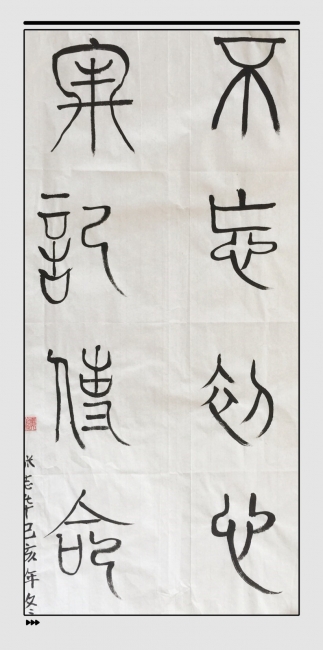 不忘初心
牢記使命
张志华己亥年冬